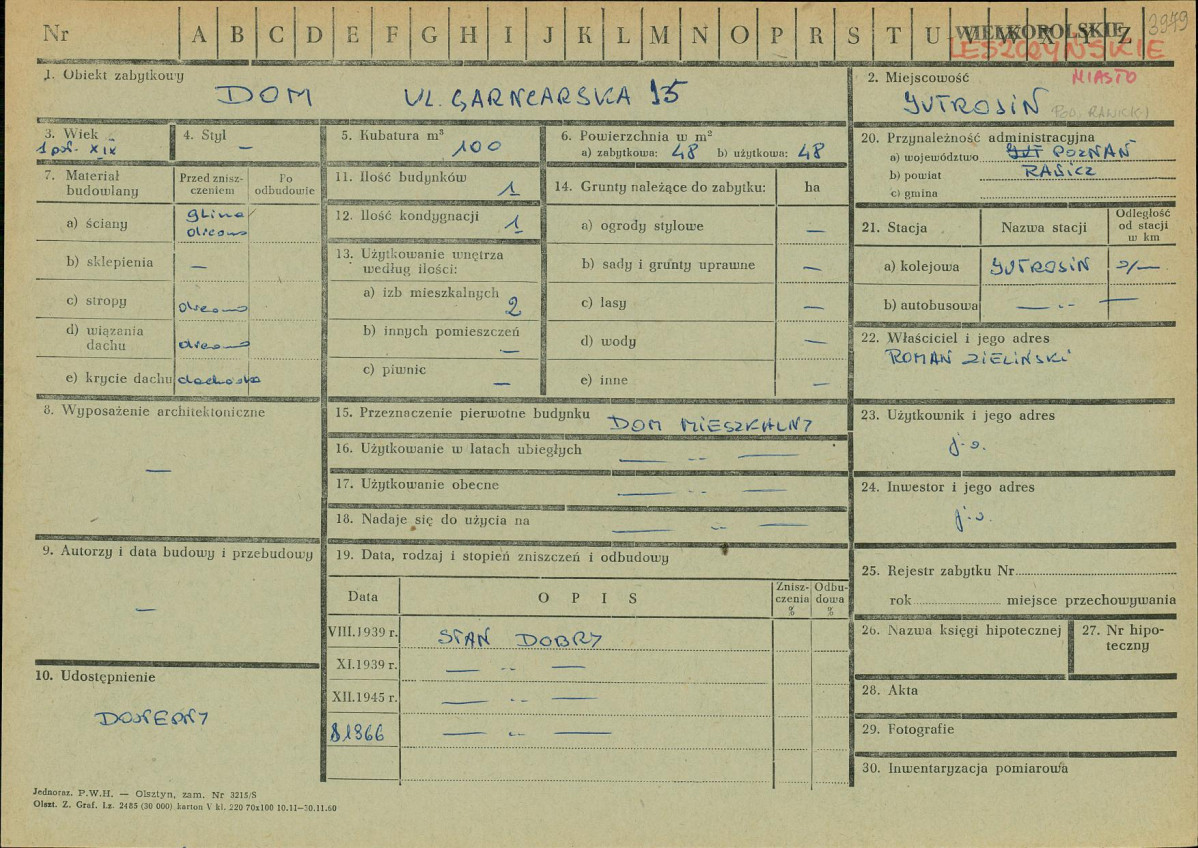 Nr A B C D E F G H I J K L M N O P R S T U V W X Y Z
WIELKOPOLSKIE 3949
LESZCZYŃSKIE
1. Obiekt zabytkowy
DOM UL. GARNCARSKA 15
2. Miejscowość MIASTO
JUTROSIN POW. RAWICKI
3. Wiek
1 poł. XIX
4. Styl
—
5. Kubatura m³
100
6. Powierzchnia w m²
a) zabytkowa: 48 b) użytkowa: 48
7. Materiał budowlany
Przed znisz-
czeniem
Po
odbudowie
a) ściany glina
drewno
b) sklepienia —
c) stropy drewno
d) wiązania
dachu drewno
e) krycie dachu dachówka
8. Wyposażenie architektoniczne
—
9. Autorzy i data budowy i przebudowy
—
10. Udostępnienie
DOSTĘPNY
11. Ilość budynków 1
12. Ilość kondygnacji 1
13. Użytkowanie wnętrza
według ilości:
a) izb mieszkalnych 2
b) innych pomieszczeń —
c) piwnic —
14. Grunty należące do zabytku: ha
a) ogrody stylowe —
b) sady i grunty uprawne —
c) lasy —
d) wody —
e) inne —
15. Przeznaczenie pierwotne budynku DOM MIESZKALNY
16. Użytkowanie w latach ubiegłych — „ —
17. Użytkowanie obecne — „ —
18. Nadaje się do użycia na — „ —
19. Data, rodzaj i stopień zniszczeń i odbudowy
Data OPIS Znisz-
czenia
% Odbu-
dowa
%
VIII.1939 r. STAN DOBRY
XI.1939 r. — „ —
XII.1945 r. — „ —
1966 — „ —
20. Przynależność administracyjna
a) województwo POZNAŃ
b) powiat RAWICZ
c) gmina
21. Stacja Nazwa stacji Odległość
od stacji
w km
a) kolejowa JUTROSIN
b) autobusowa — „ —
22. Właściciel i jego adres
ROMAN ZIELIŃSKI
23. Użytkownik i jego adres
j.w.
24. Inwestor i jego adres
j.w.
25. Rejestr zabytku Nr
rok miejsce przechowywania
26. Nazwa księgi hipotecznej
27. Nr hipo-
teczny
28. Akta
29. Fotografie
30. Inwentaryzacja pomiarowa
Jednoraz. P.W.H. — Olsztyn, zam. Nr 3215/S
Olszt. Z. Graf. Lz. 2485 (30 000) karton V kl. 220 70x100 10.11—30.11.60